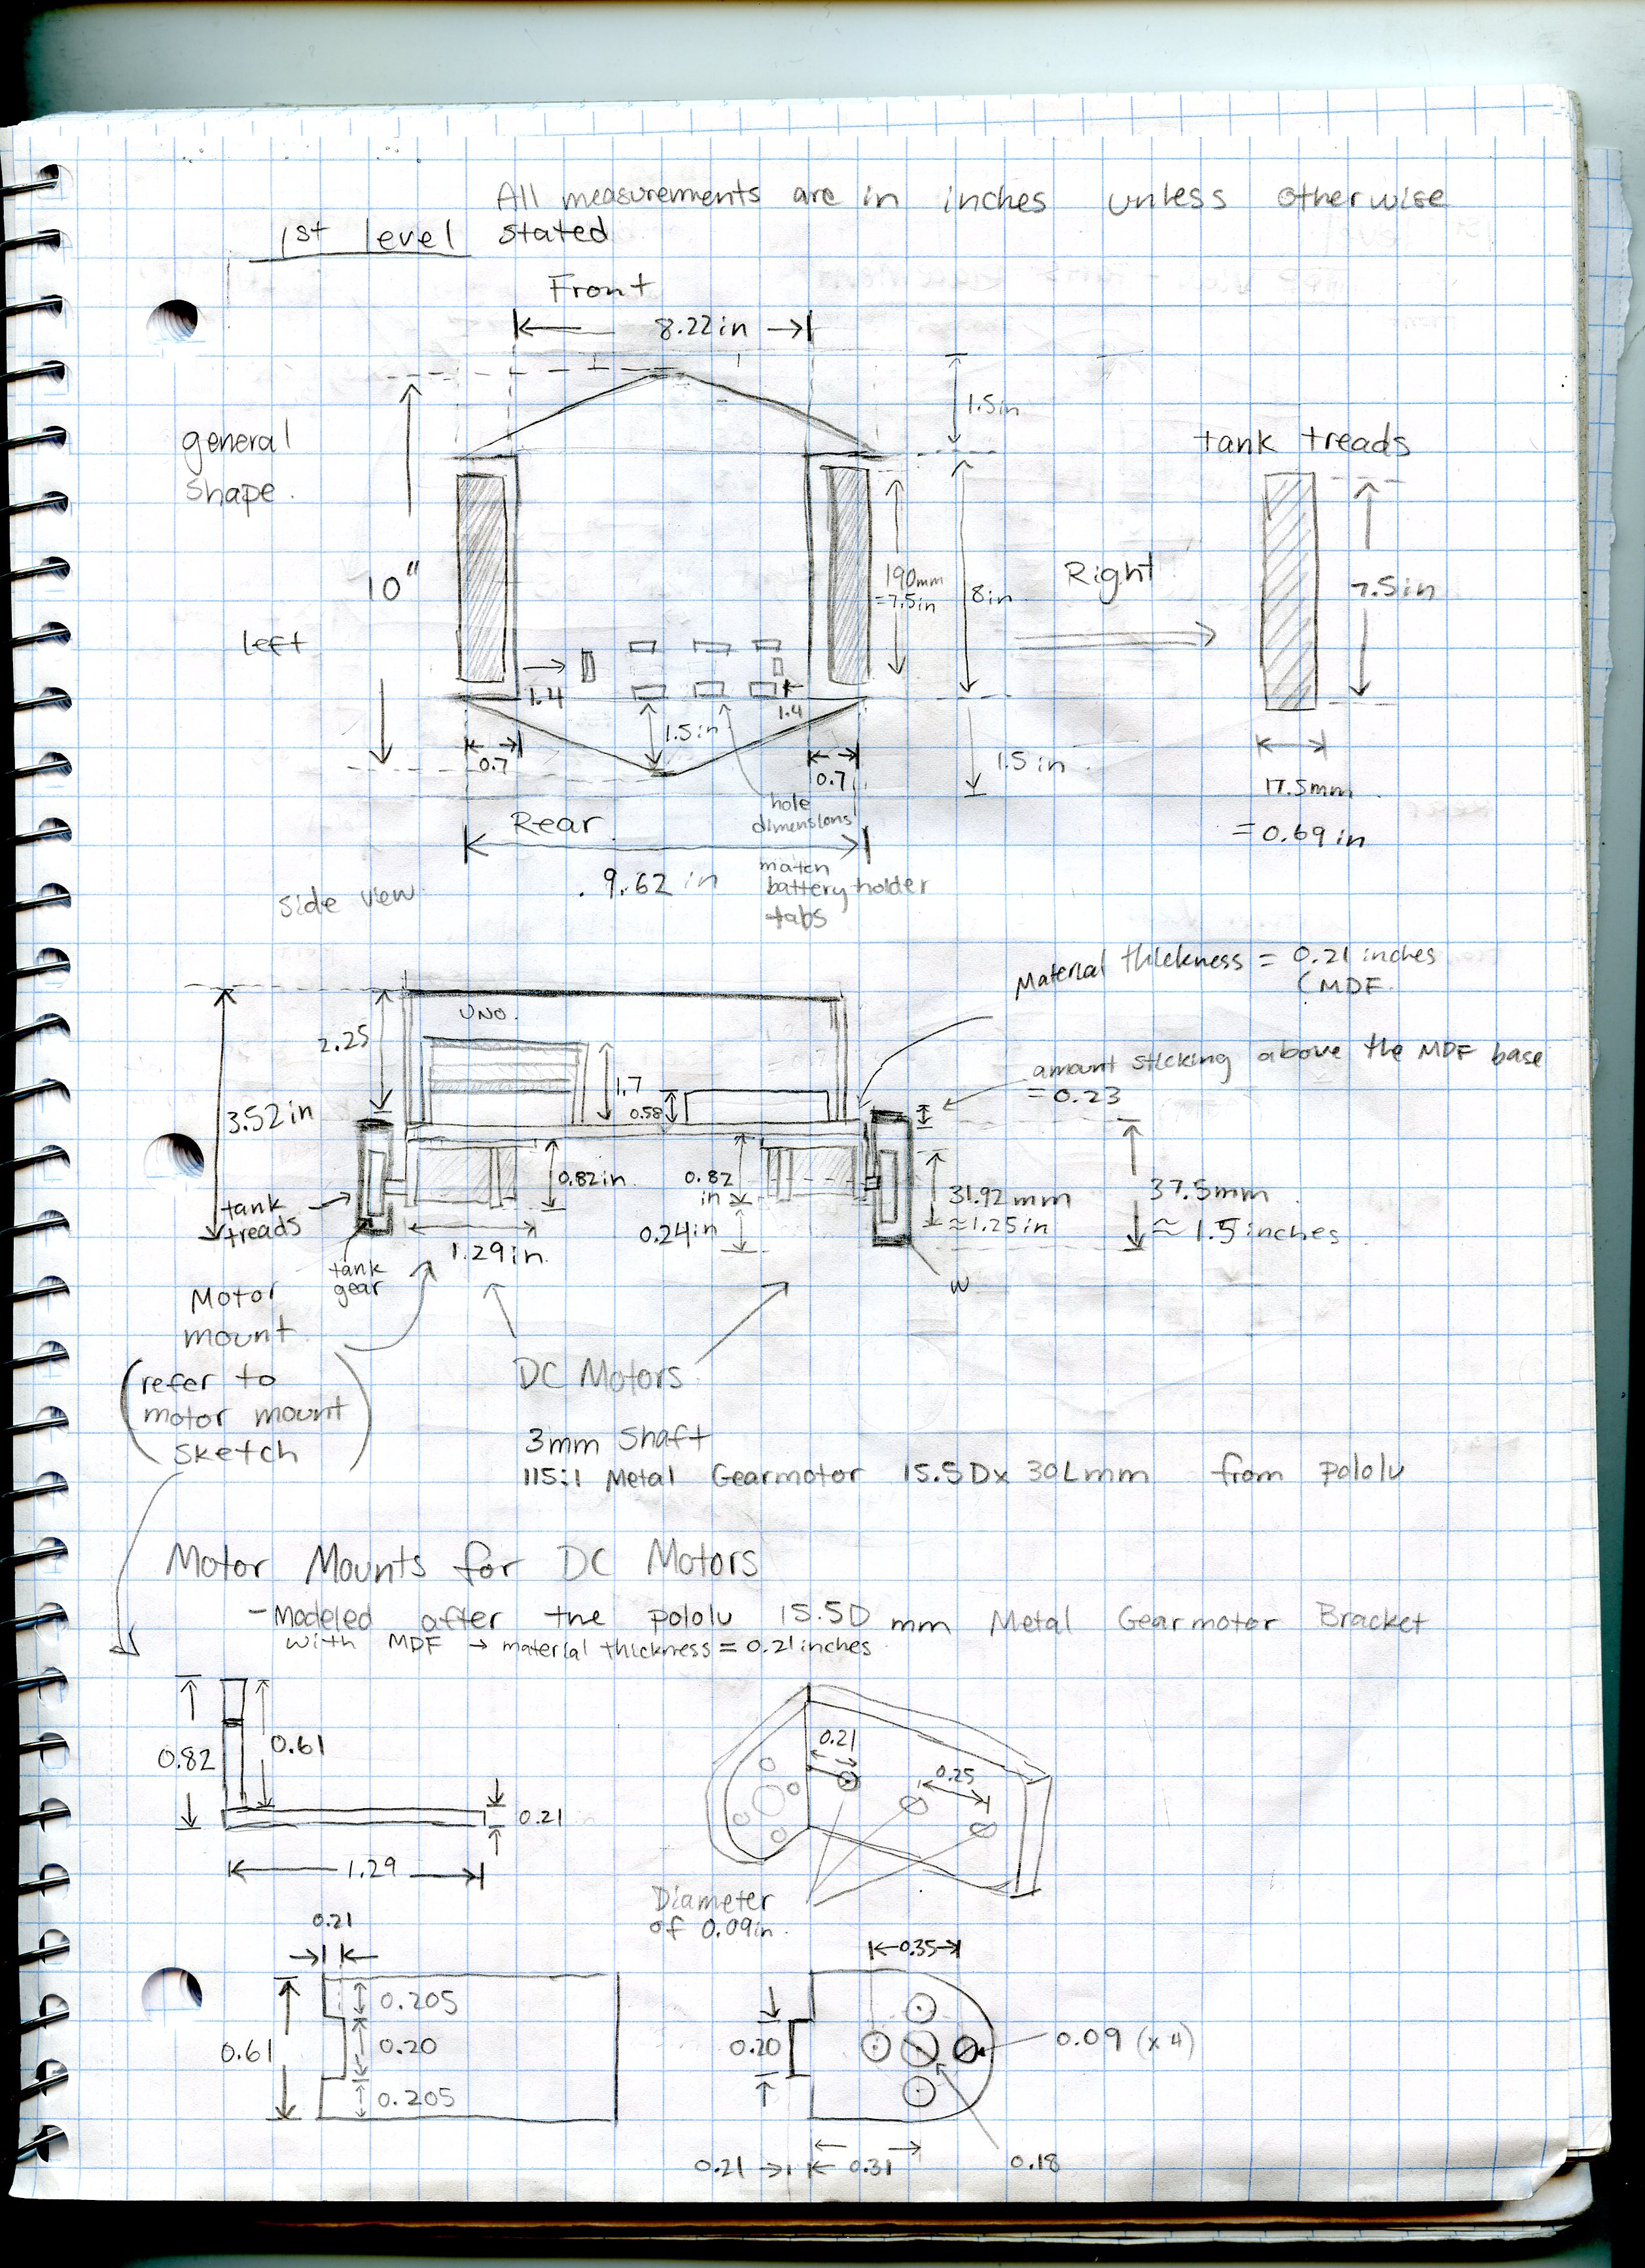 All measurements are in inches unless otherwise
1st level stated
Front
8.22 in
1.5in
general
shape.
tank treads
10"
190mm
=7.5in
8in
Right
7.5in
left
1.4
1.4
1.5in
0.7
0.7
1.5 in
hole
dimensions
match
battery holder
tabs
17.5mm
= 0.69 in
Rear
9.62 in
side view
Material thickness = 0.21 inches
(MDF
UNO.
2.25
amount sticking above the MDF base
= 0.23
1.7
0.58
3.52 in
0.82in
0.82
in
31.92 mm
≈1.25 in
37.5mm
≈ 1.5 inches
tank
treads
0.24in
1.29in.
tank
gear
W
Motor
mount
(refer to
motor mount
sketch)
DC Motors
3mm Shaft
115:1 Metal Gearmotor 15.5Dx 30Lmm from pololu
Motor Mounts for DC Motors
- Modeled after the pololu 15.5D mm Metal Gearmotor Bracket
with MDF → material thickness = 0.21 inches
0.82
0.61
0.21
1.29
0.21
0.25
Diameter
of 0.09in.
0.21
0.61
0.205
0.20
0.205
0.35
0.20
0.09 (x 4)
0.21
0.31
0.18